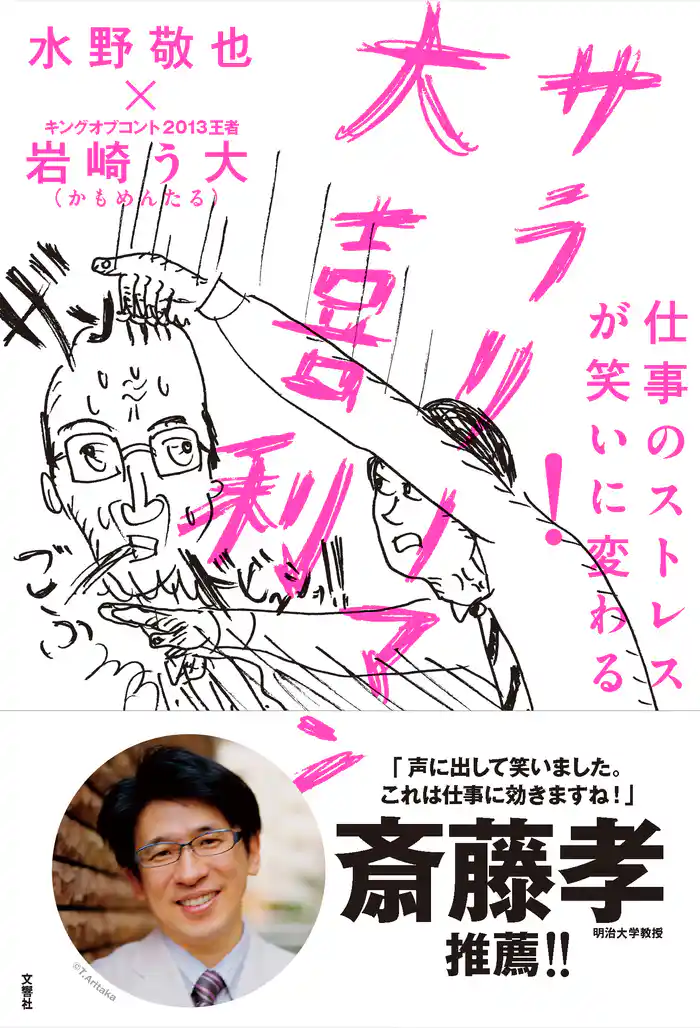 水野敬也
×
キングオブコント2013王者
岩崎う大
(かもめんたる)
サラリーマン
大喜利
仕事のストレス
が笑いに変わる
!
ガッ
ごふっ
ドビシッ!!
「声に出して笑いました。
これは仕事に効きますね!」
斎藤孝
明治大学教授
推薦!!
©T.Aritaka
文響社